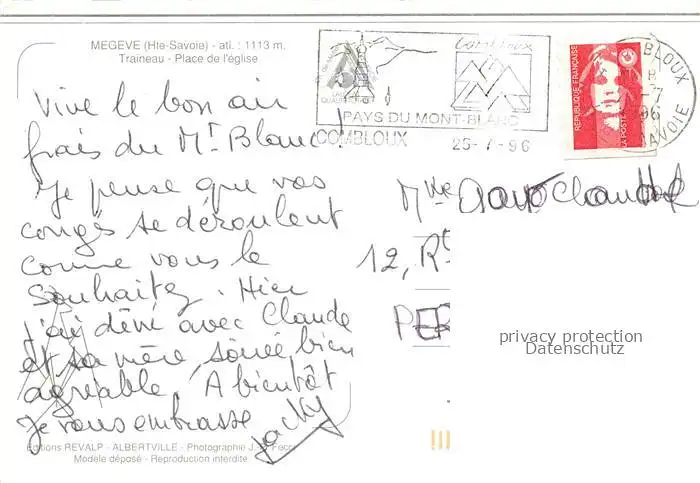 MEGEVE (Hte-Savoie) - alt. : 1113 m.
Traineau - Place de l'église
Combloux
PAYS DU MONT-BLANC
COMBLOUX
25-7-96
REPUBLIQUE FRANÇAISE
LA POSTE
Vive le bon air
frais du Mt Blanc!
Je pense que vos
congés se déroulent
comme vous le
souhaitez. Hier
j'ai dîné avec Claude
et sa mère, soirée bien
agréable. A bientôt
Je vous embrasse
Jacky
Mme
12, R
PER
privacy protection
Datenschutz
Editions REVALP - ALBERTVILLE - Photographie J.
Modèle déposé - Reproduction interdite